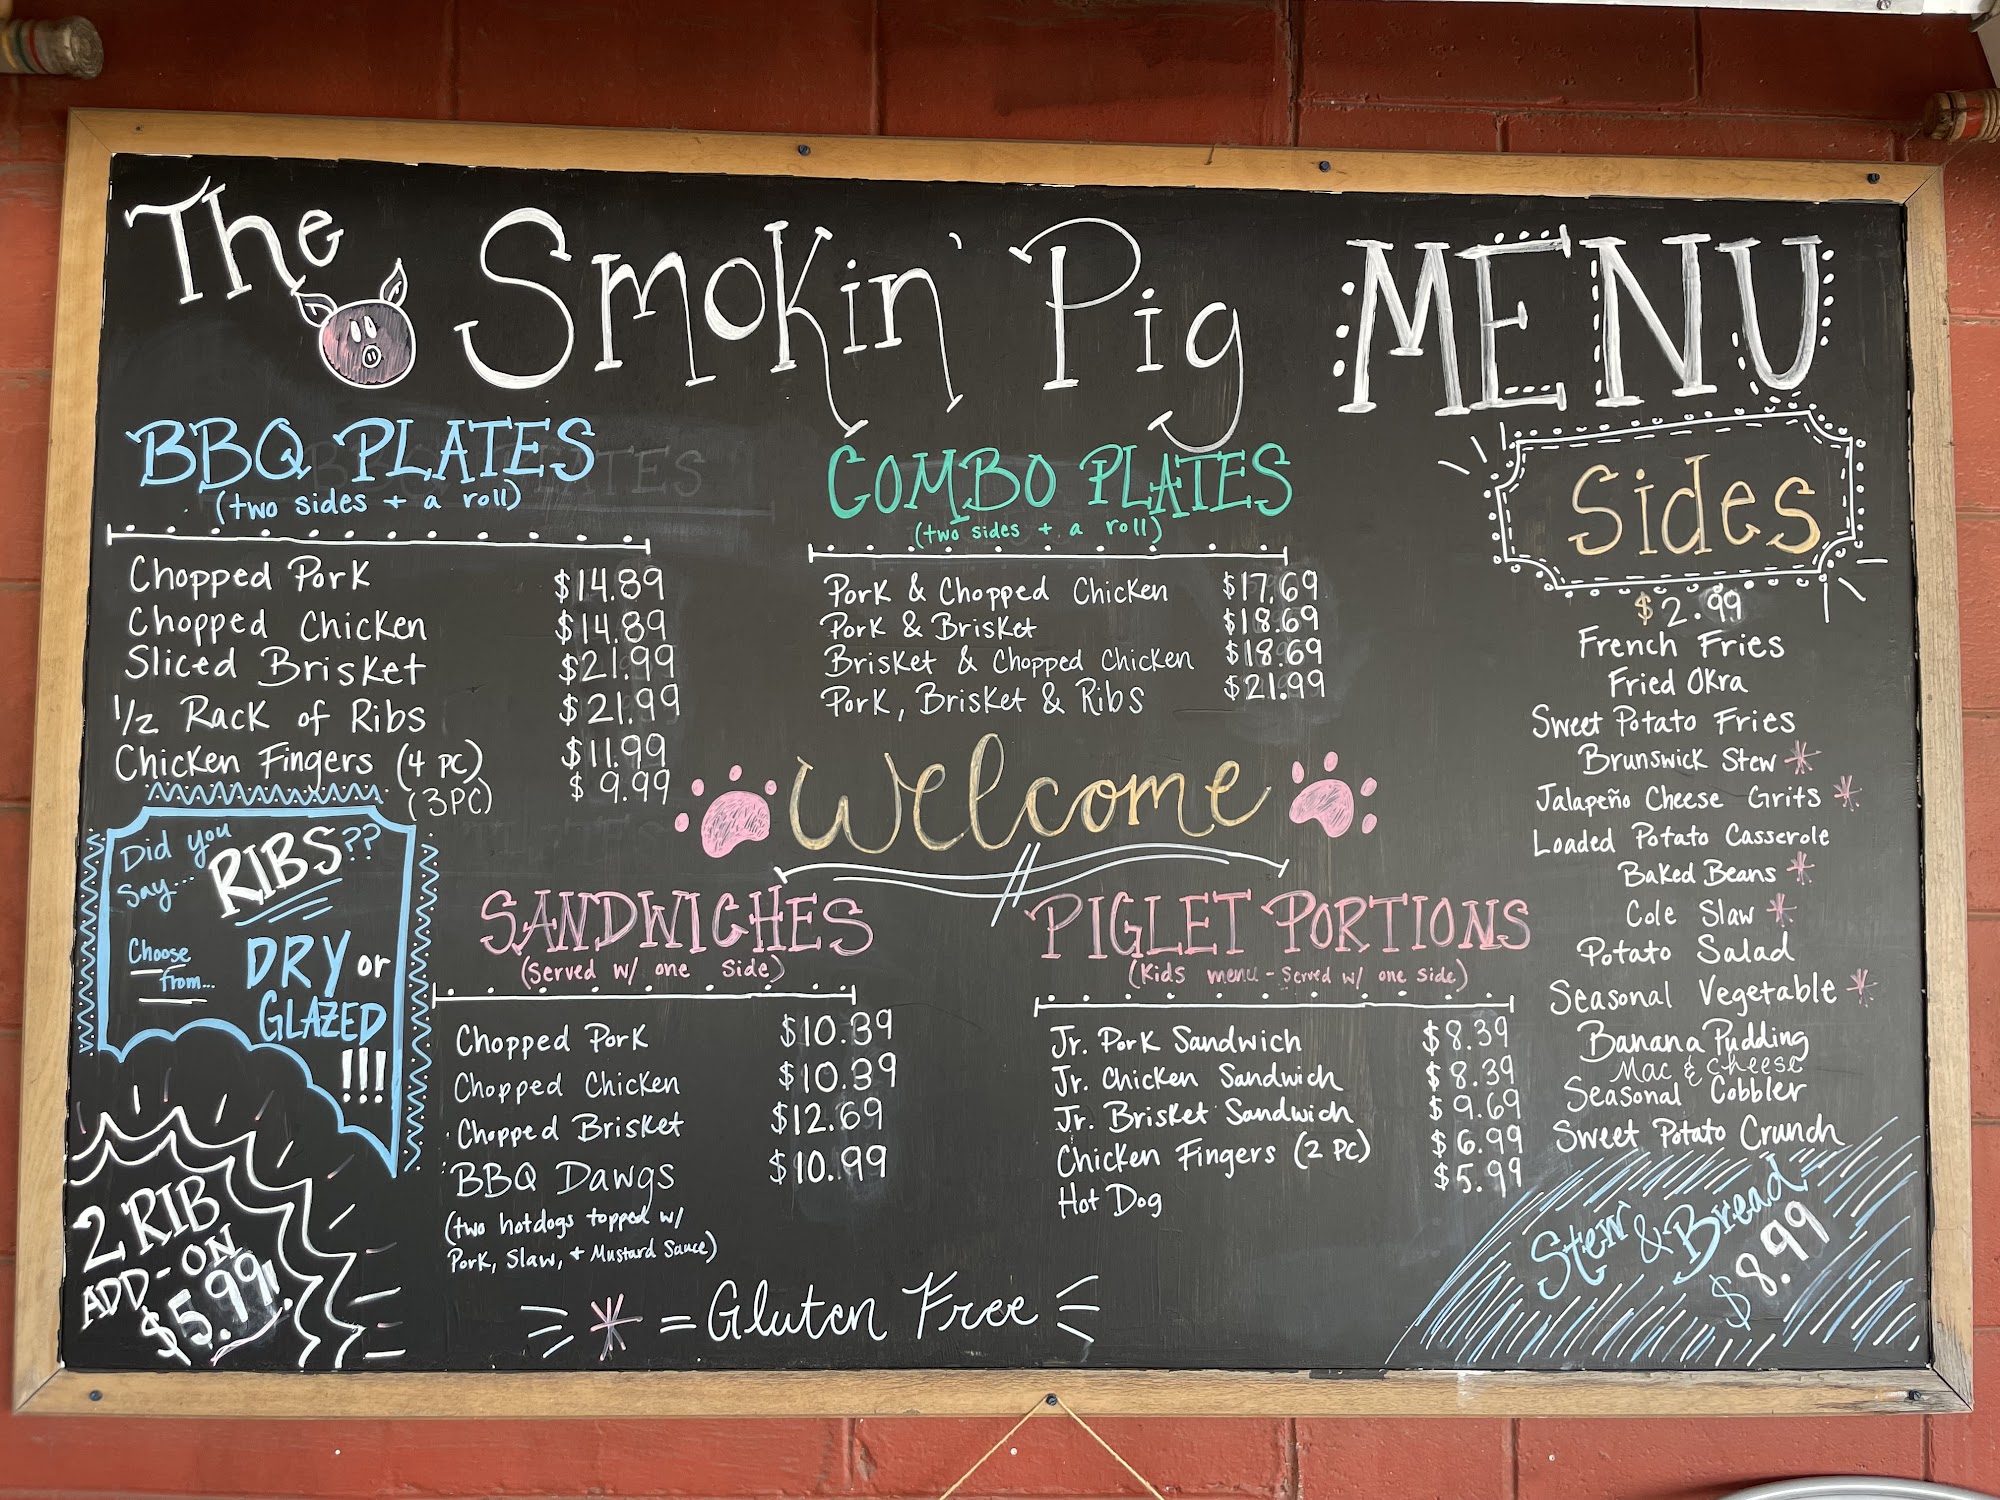 The Smokin' Pig MENU
BBQ PLATES
(two sides + a roll)
Chopped Pork $14.89
Chopped Chicken $14.89
Sliced Brisket $21.99
1/2 Rack of Ribs $21.99
Chicken Fingers (4 PC) $11.99
(3PC) $9.99
COMBO PLATES
(two sides + a roll)
Pork & Chopped Chicken $17.69
Pork & Brisket $18.69
Brisket & Chopped Chicken $18.69
Pork, Brisket & Ribs $21.99
Welcome
Did you
say...
RIBS??
Choose
from...
DRY or
GLAZED
!!!
2 RIB
ADD-ON
$5.99!
SANDWICHES
(Served w/ one side)
Chopped Pork $10.39
Chopped Chicken $10.39
Chopped Brisket $12.69
BBQ Dawgs $10.99
(two hotdogs topped w/
Pork, Slaw, + Mustard Sauce)
PIGLET PORTIONS
(Kids menu - Served w/ one side)
Jr. Pork Sandwich $8.39
Jr. Chicken Sandwich $8.39
Jr. Brisket Sandwich $9.69
Chicken Fingers (2 PC) $6.99
Hot Dog $5.99
Sides
$2.99
French Fries
Fried Okra
Sweet Potato Fries
Brunswick Stew *
Jalapeño Cheese Grits *
Loaded Potato Casserole
Baked Beans *
Cole Slaw *
Potato Salad
Seasonal Vegetable *
Banana Pudding
Mac & Cheese
Seasonal Cobbler
Sweet Potato Crunch
Stew & Bread
$8.99
* = Gluten Free